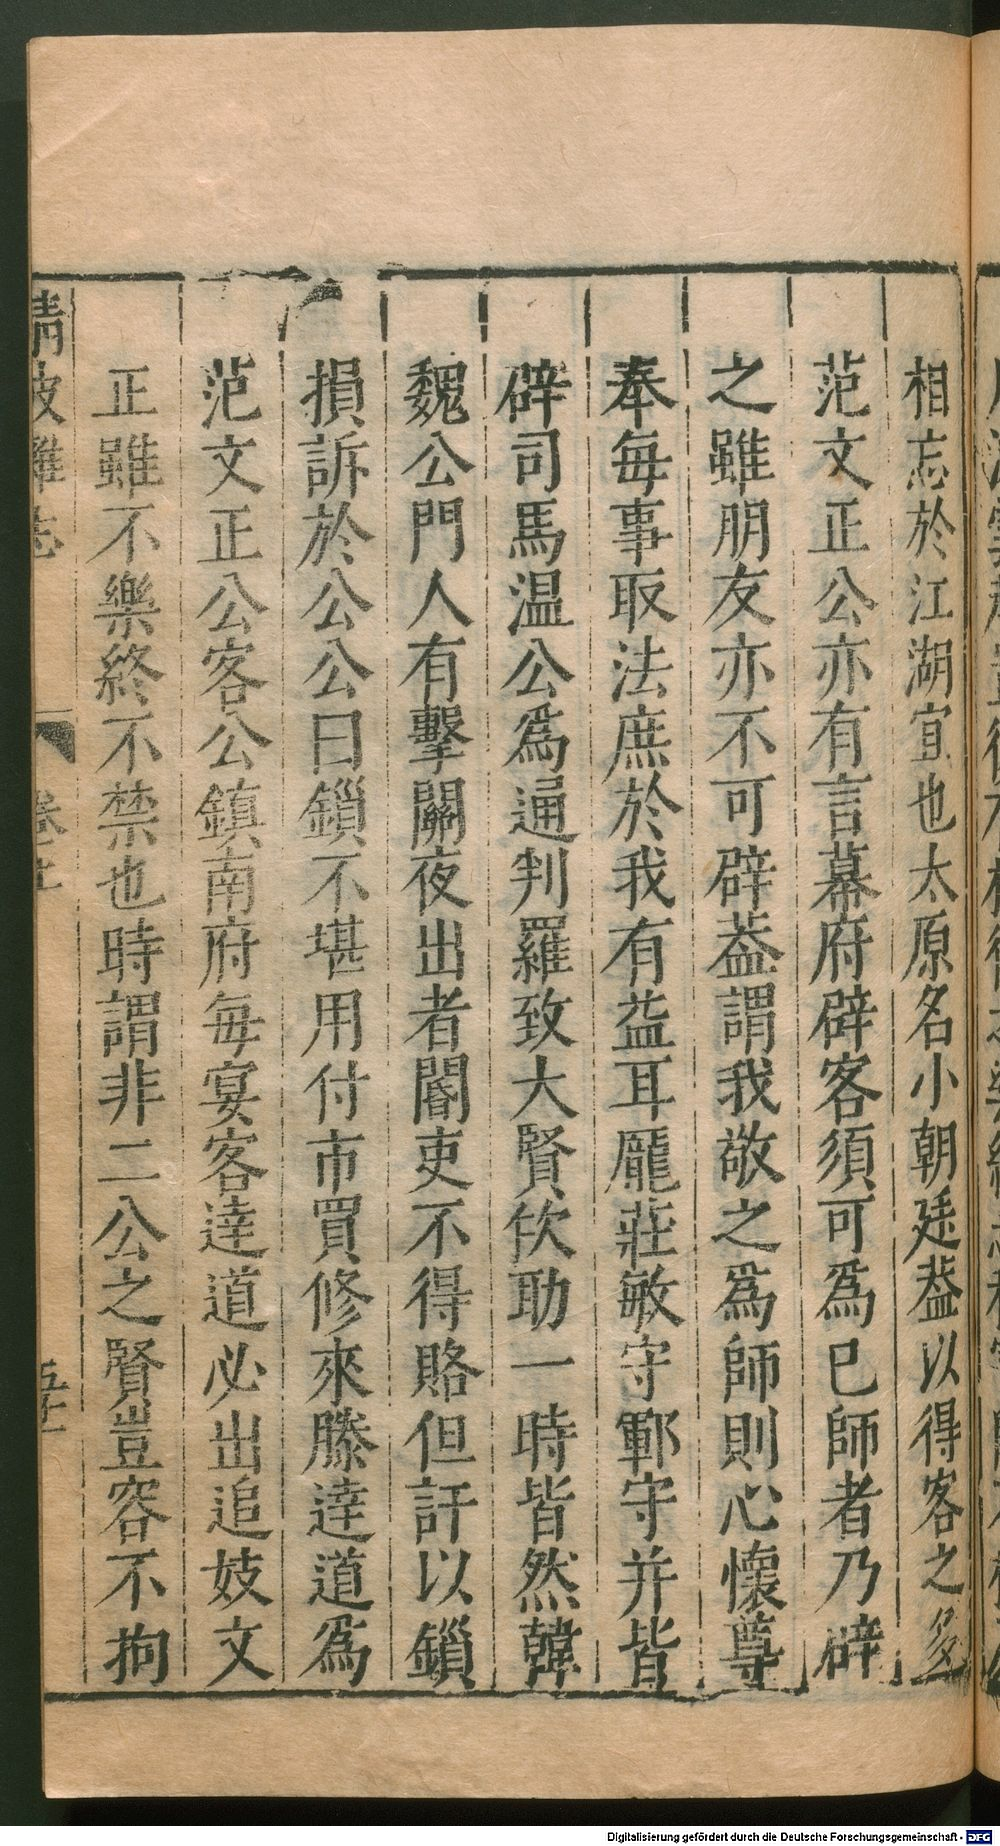 相忘於江湖宜也太原名小朝廷葢以得客之多
范文正公亦有言幕府辟客須可爲已師者乃辟
之雖朋友亦不可辟葢謂我敬之爲師則心懷尊
奉每事取法庶於我有益耳龐莊敏守鄆守并皆
辟司馬温公爲通判羅致大賢佽助一時皆然韓
魏公門人有擊關夜出者閽吏不得賂但訐以鎖
損訴於公公曰鎖不堪用付市買修來滕達道爲
范文正公客公鎮南府每宴客達道必出追妓文
正雖不樂終不禁也時謂非二公之賢豈容不拘
清波雜志 卷十 五十一
Digitalisierung gefördert durch die Deutsche Forschungsgemeinschaft - DFG